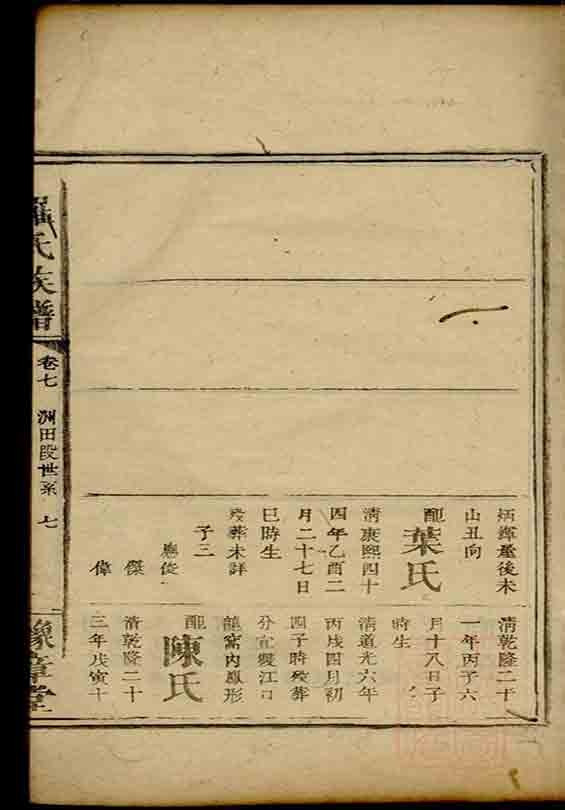 炳輝塋後未
山丑向
配葉氏
清康熙四十
四年乙酉二
月二十七日
巳時生
殁葬未詳
子三
應俊
傑
偉
清乾隆二十
一年丙子六
月十八日子
時生
清道光六年
丙戌四月初
四子時殁葬
分宜雙江口
龍窩內鳳形
配陳氏
清乾隆二十
三年戊寅十
羅氏族譜
卷七
洲田段世系
七
豫章堂